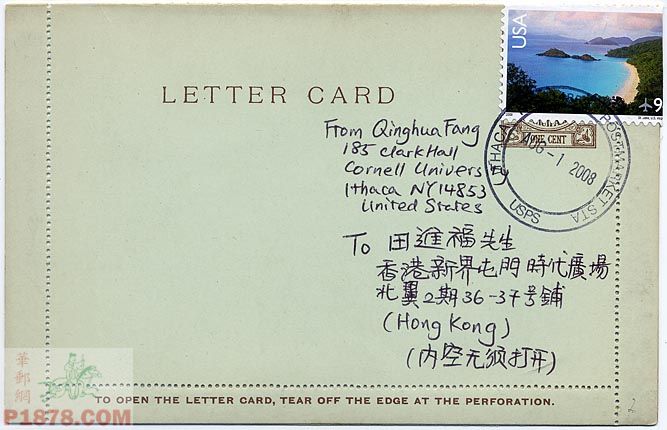 USA
9
LETTER CARD
ONE CENT
ITHACA
AUG - 1 2008
MARKET STA
USPS
From Qinghua Fang
185 Clark Hall
Cornell University
Ithaca NY 14853
United States
To 田進福先生
香港新界屯門時代廣場
北翼2期36-37号鋪
(Hong Kong)
(内空无须打开)
華郵網
P1878.COM
TO OPEN THE LETTER CARD, TEAR OFF THE EDGE AT THE PERFORATION.